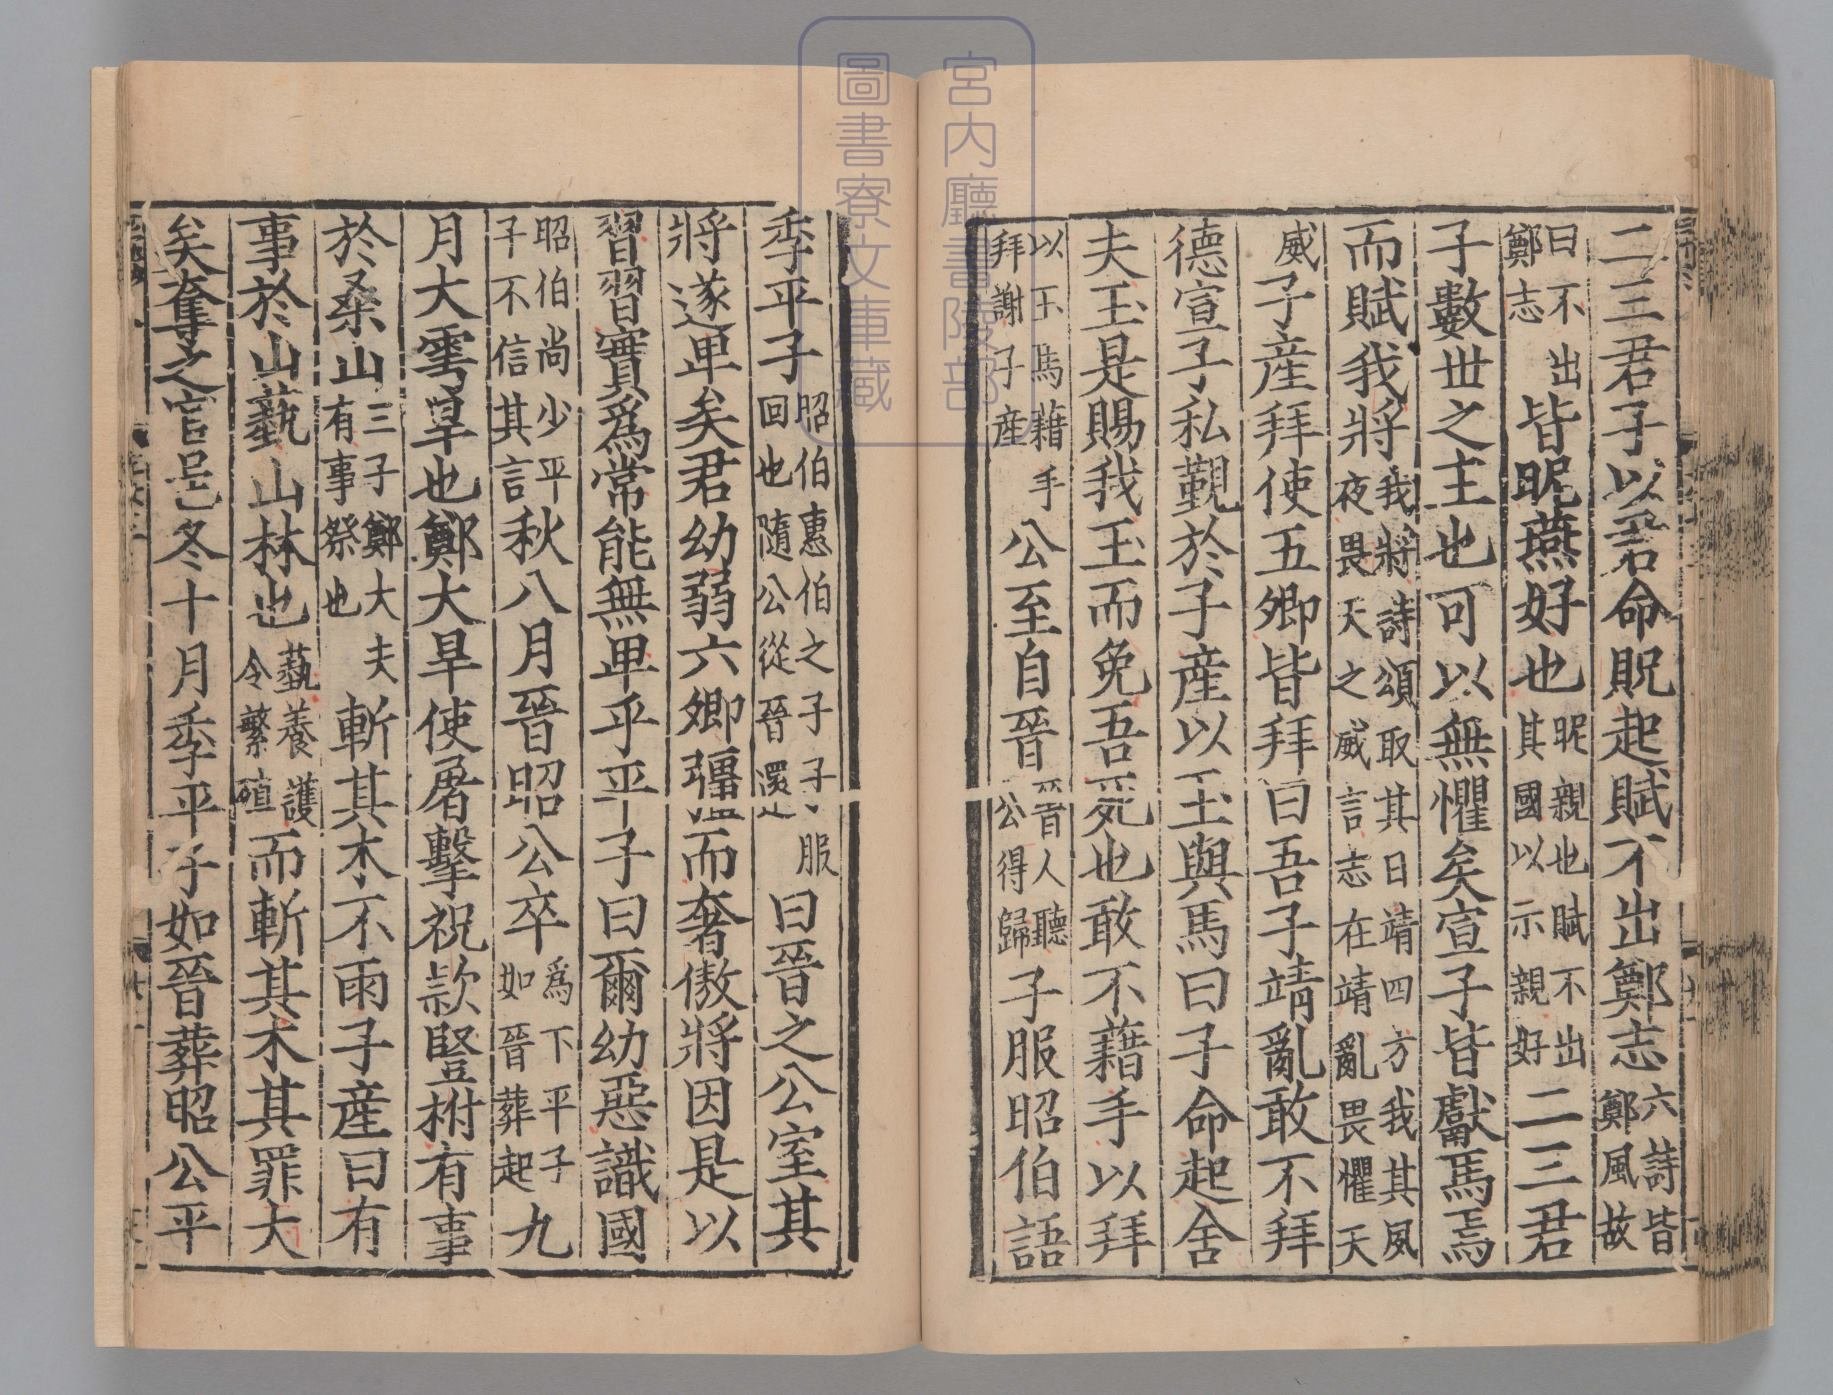 二三君子以君命貺起賦不出鄭志六詩皆鄭風故
曰不出鄭志皆昵燕好也昵親也賦不出其國以示親好二三君
子數世之主也可以無懼矣宣子皆獻馬焉
而賦我將我將詩頌取其日靖四方我其夙夜畏天之威言志在靖亂畏懼天
威子産拜使五卿皆拜曰吾子靖亂敢不拜
德宣子私覿於子産以玉與馬曰子命起舍
夫玉是賜我玉而免吾死也敢不藉手以拜
以玉馬藉手拜謝子産公至自晉晉人聽公得歸子服昭伯語
季平子昭伯惠伯之子子服回也隨公從晉還曰晉之公室其
將遂卑矣君幼弱六卿彊而奢傲將因是以
習習實爲常能無卑乎平子曰爾幼惡識國
昭伯尚少平子不信其言秋八月晉昭公卒爲下平子如晉葬起九
月大雩旱也鄭大旱使屠擊祝款豎柎有事
於桑山三子鄭大夫有事祭也斬其木不雨子産曰有
事於山蓺山林也蓺養護令繁殖而斬其木其罪大
矣奪之官邑冬十月季平子如晉葬昭公平
宮内廳書陵部
圖書寮文庫藏